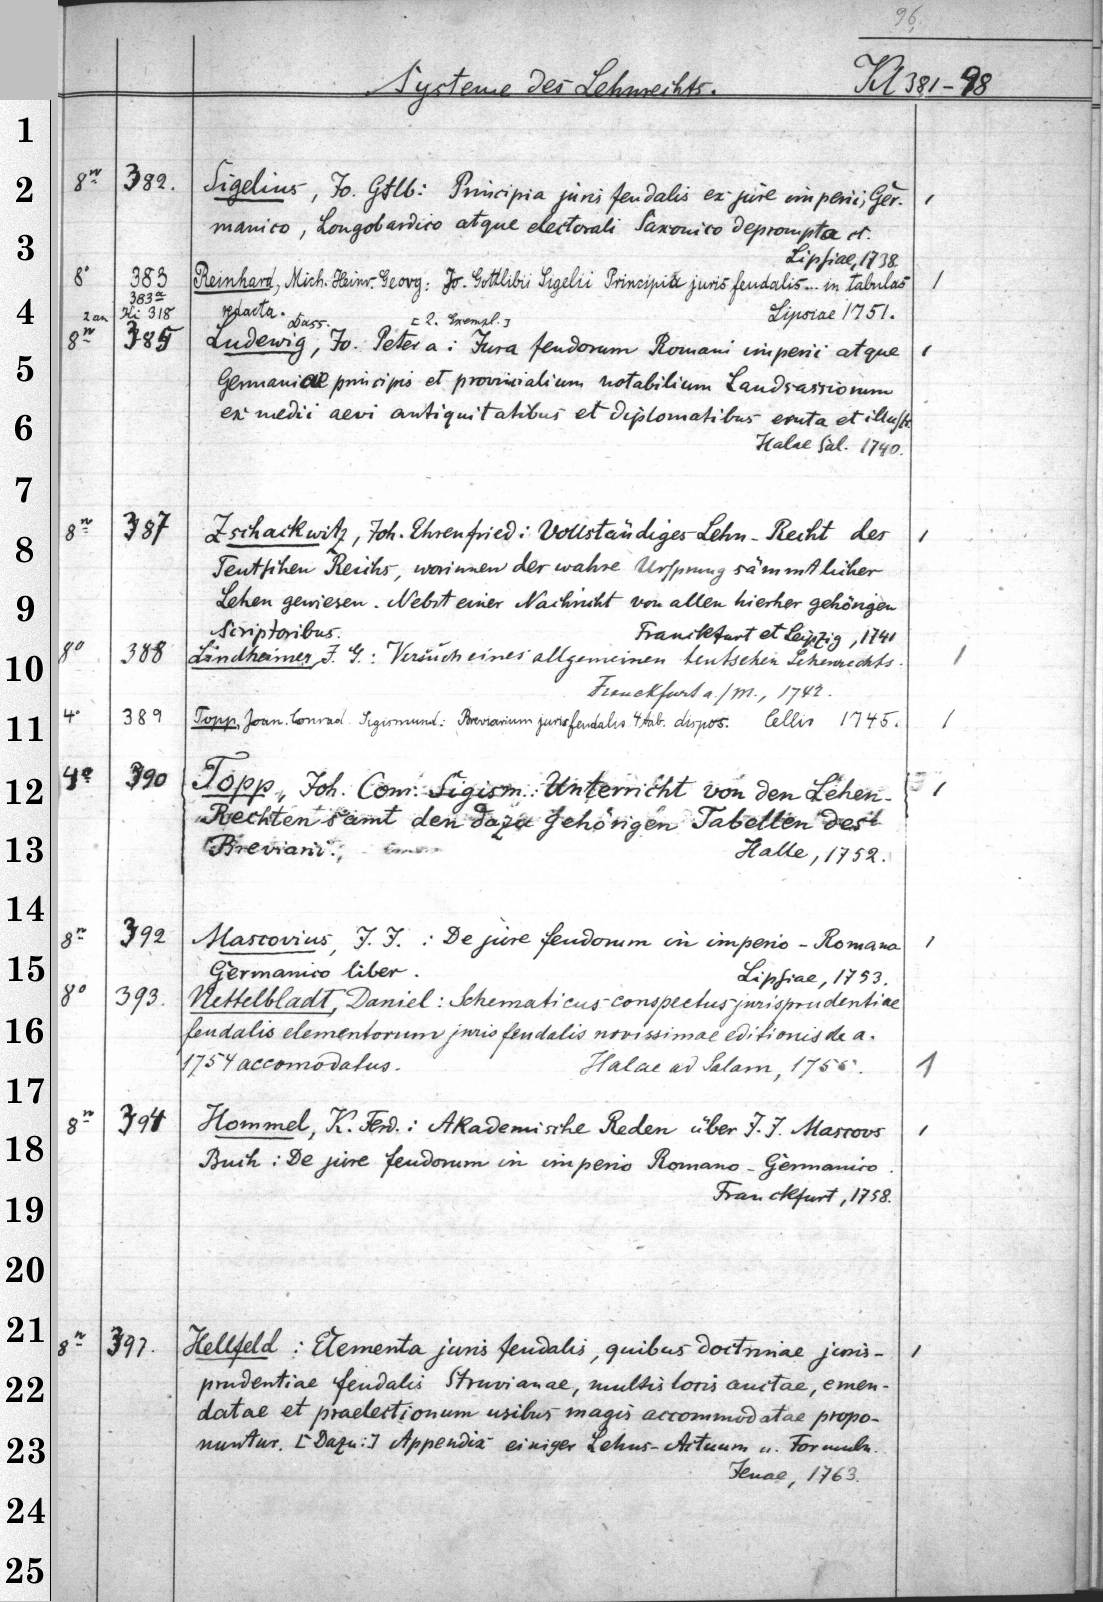 96.
Systeme des Lehnrechts. Kl 381-98
1
8º 382. Sigelius, Jo. Gtlb: Principia juris feudalis ex jure imperii, Ger-
2
manico, Longobardico atque electorali Saxonico deprompta et.
3
Lipsiae, 1738
8º 383 Reinhard, Mich. Heinr. Georg: Jo. Gottlibii Sigelii Principia juris feudalis... in tabulas
383a
4
2 an Hi 318 redacta. Lipsiae 1751.
Dass. [2. Exempl.]
8º 385 Ludewig, Jo. Peter a: Jura feudorum Romani imperii atque
5
Germaniae principis et provincialium notabilium Landsassiorum
6
ex medii aevi antiquitatibus et diplomatibus eruta et illustr.
Halae Sal. 1740.
7
8º 387 Zschackwitz, Joh. Ehrenfried: Vollständiges Lehn-Recht des
8
Teutschen Reichs, worinnen der wahre Ursprung sämmtlicher
9
Lehen gewiesen. Nebst einer Nachricht von allen hierher gehörigen
Scriptoribus. Franckfurt et Leipzig, 1741
10
8º 388 Lindheimer, F. G.: Versuch eines allgemeinen teutschen Lehenrechts.
Franckfurt a./M., 1742.
11
4º 389 Topp, Joan. Conrad Sigismund: Breviarium juris feudalis 4 tab. dispos. Cellis 1745.
12
4º 390 Topp, Joh. Conr. Sigism.: Unterricht von den Lehen-
Rechten samt den dazu gehörigen Tabellen des
13
Breviarii. Halle, 1752.
14
8º 392 Mascovius, J. J.: De jure feudorum in imperio-Romano
15
Germanico liber. Lipsiae, 1753.
8º 393. Nettelbladt, Daniel: Schematicus conspectus jurisprudentiae
16
feudalis elementorum juris feudalis novissimae editionis de a.
1754 accomodatus. Halae ad Salam, 1755.
17
8º 394 Hommel, K. Ferd.: Akademische Reden über J. J. Mascovs
18
Buch: De jure feudorum in imperio Romano-Germanico.
19
Franckfurt, 1758.
20
21
8º 397. Hellfeld: Elementa juris feudalis, quibus doctrinae juris-
22
prudentiae feudalis Struvianae, multis locis auctae, emen-
datae et praelectionum usibus magis accommodatae propo-
23
nuntur. [Dazu:] Appendix einiger Lehns-Actuum u. Formuln.
Jenae, 1763.
24
25